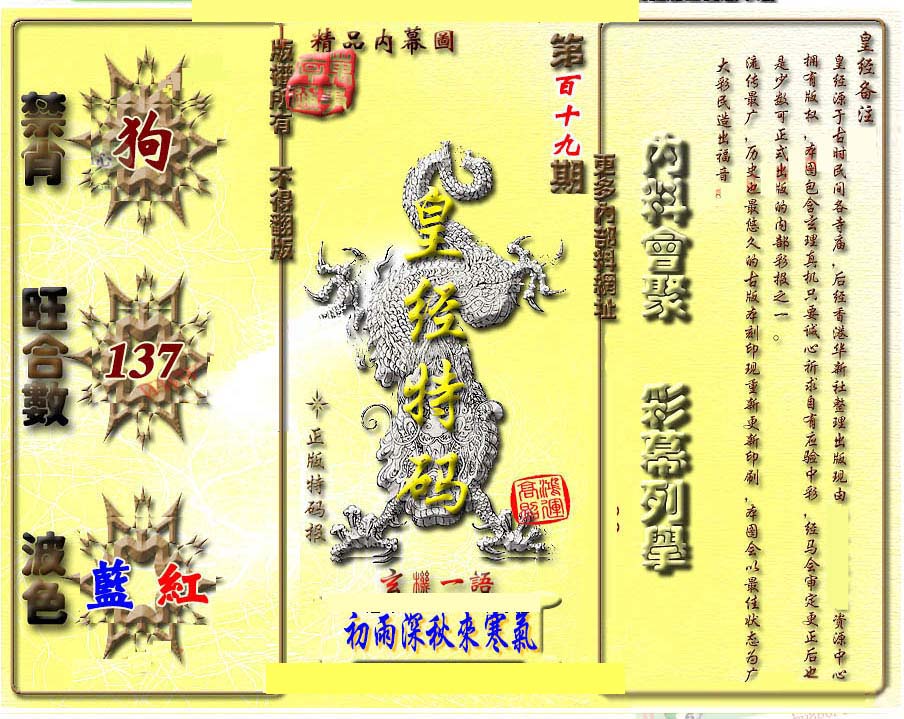 精品内幕圖
第百十九期
版權所有 不得翻版
更多內部料網址
禁肖
狗
旺合數
137
波色
藍 紅
皇经特码
正版特码报
鴻運高照
玄機一語
初雨深秋來寒氣
內料會聚 彩幕列舉
皇经备注
皇经源于古时民间各寺庙，后经香港华新社整理出版现由 资源中心
拥有版权，本图包含玄理真机只要诚心祈求自有应验中彩，经马会审定更正后也
是少数可正式出版的内部彩报之一。
流传最广，历史也最悠久的古版本刻印现重新更新印刷，本图会以最佳状态为广
大彩民造出福音